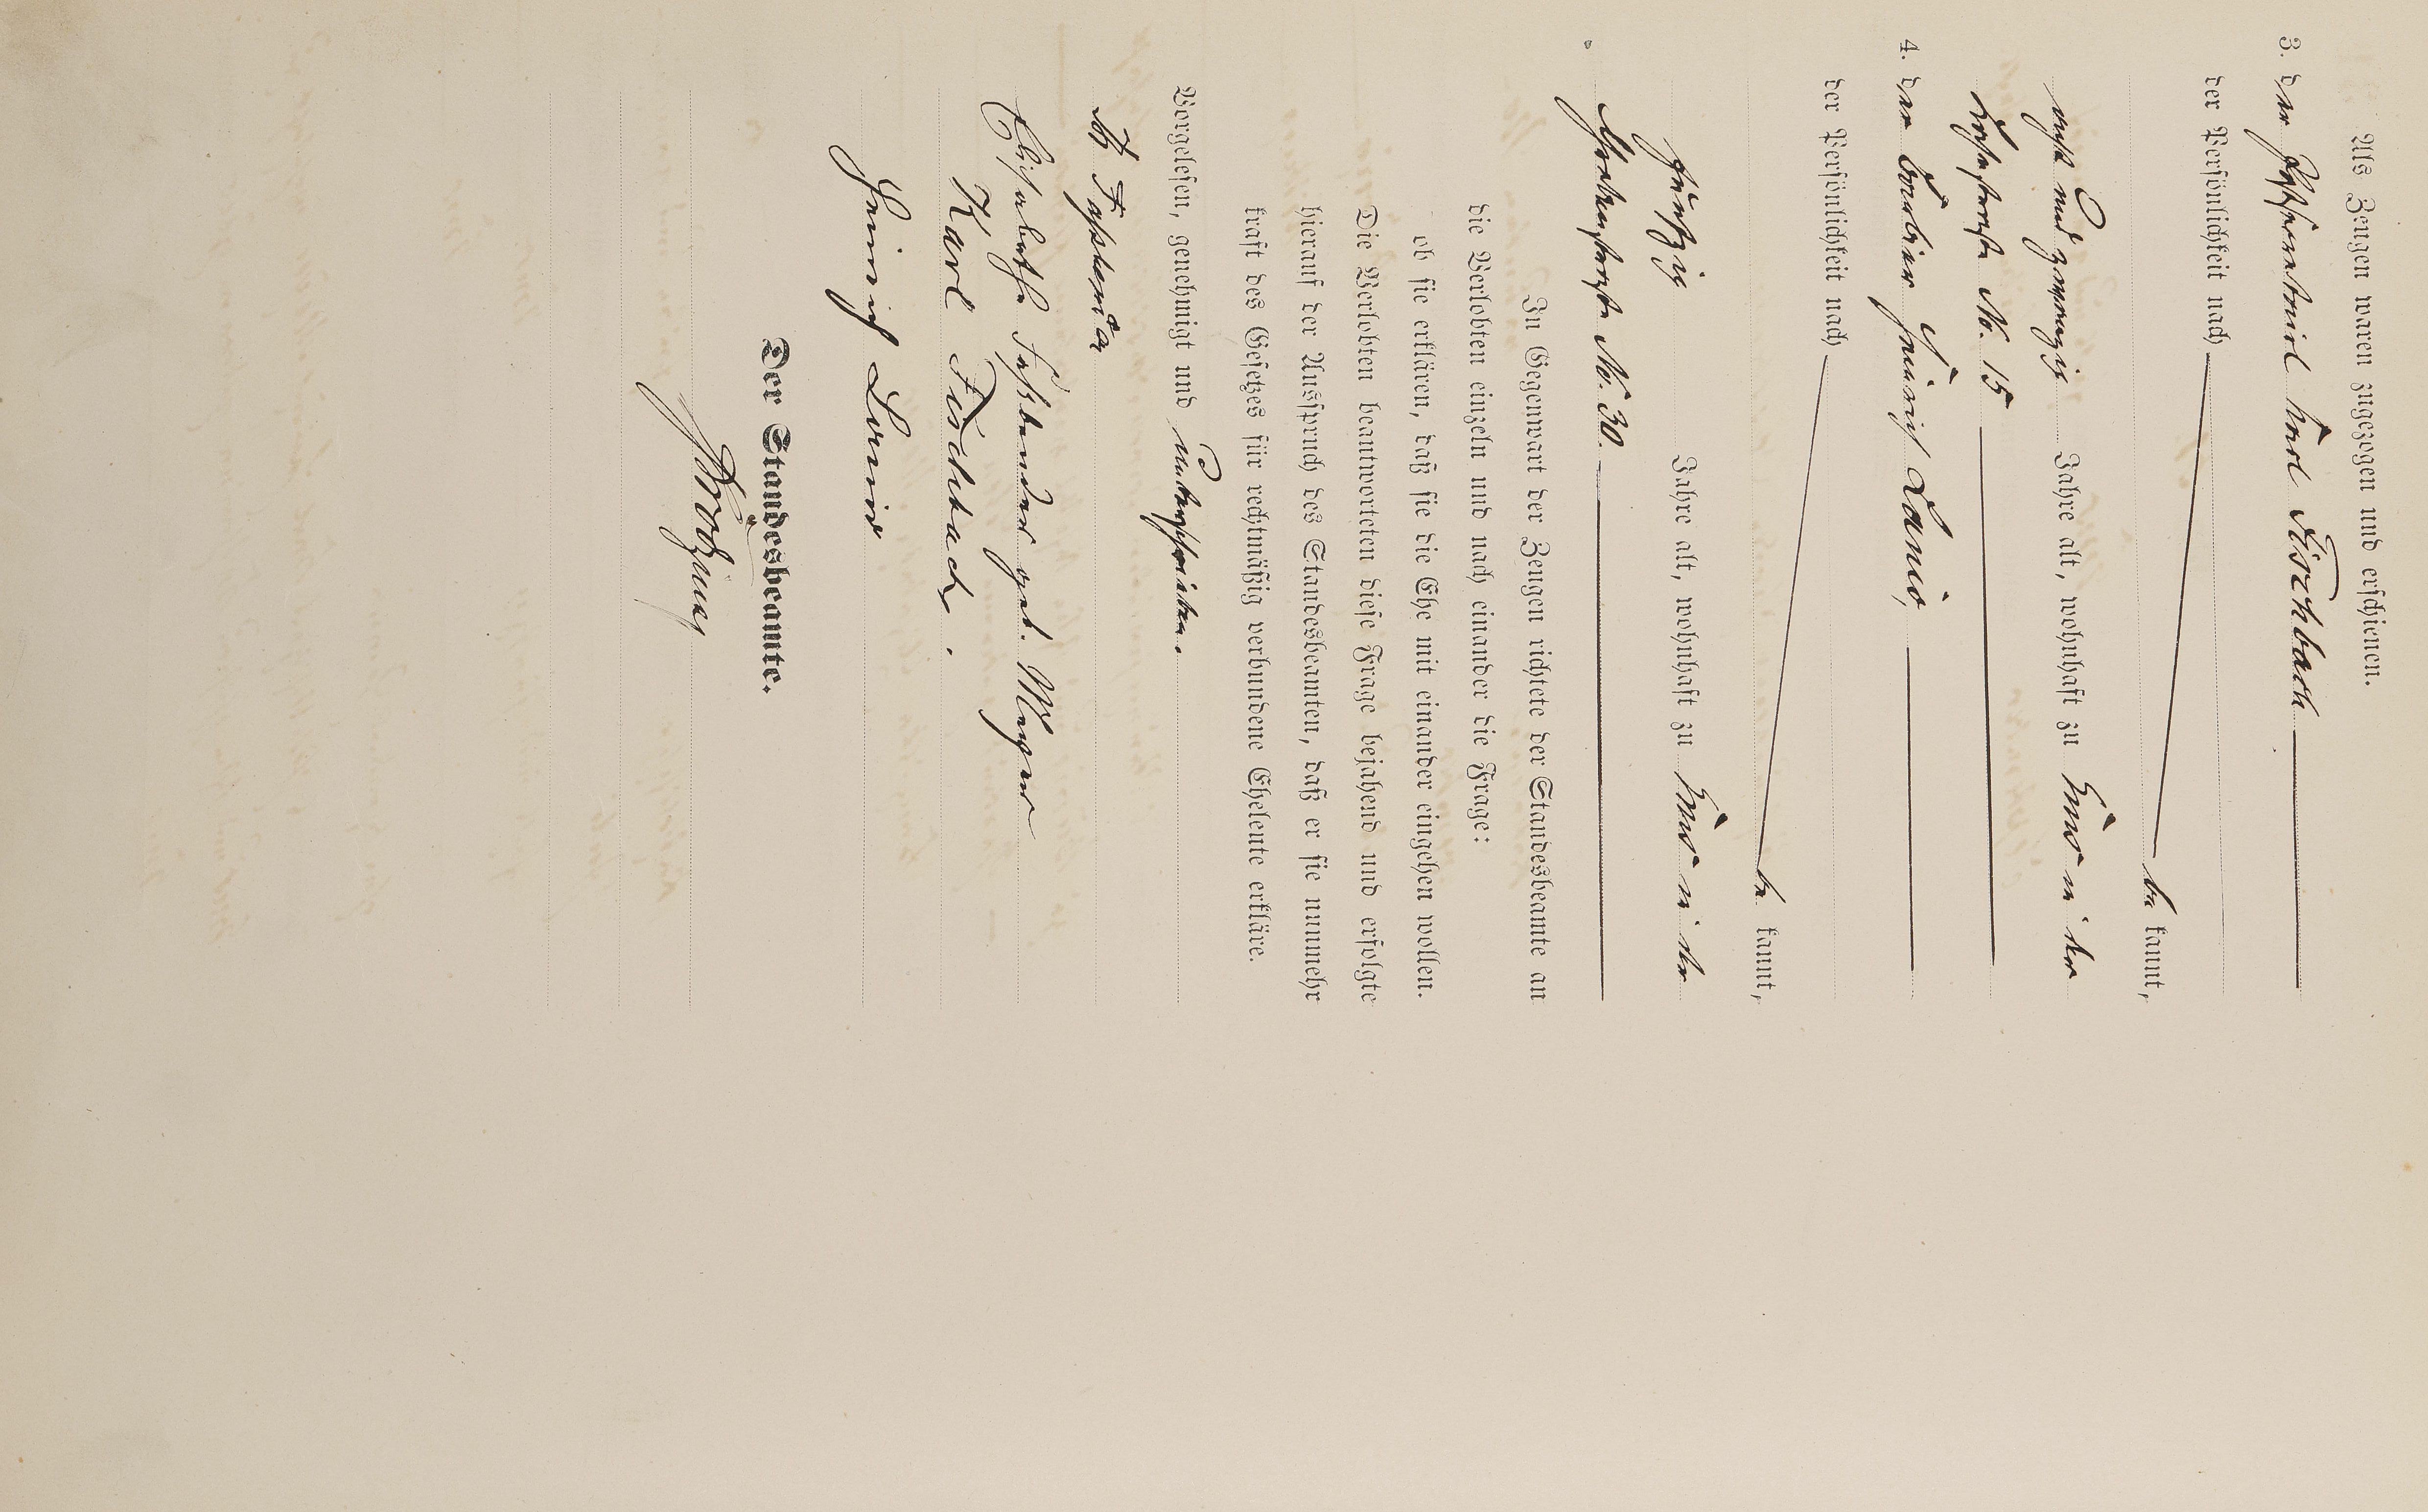 Als Zeugen waren zugezogen und erschienen:
3. der Karl Fischbach
der Persönlichkeit nach
be kannt,
acht und zwanzig Jahre alt, wohnhaft zu hier in der
No. 15
4. der Barbier Heinrich Lanio,
der Persönlichkeit nach
be kannt,
fünfzig Jahre alt, wohnhaft zu hier in der
No. 30.
In Gegenwart der Zeugen richtete der Standesbeamte an
die Verlobten einzeln und nach einander die Frage:
ob sie erklären, daß sie die Ehe mit einander eingehen wollen.
Die Verlobten beantworteten diese Frage bejahend und erfolgte
hierauf der Ausspruch des Standesbeamten, daß er sie nunmehr
kraft des Gesetzes für rechtmäßig verbundene Eheleute erkläre.
Vorgelesen, genehmigt und unterschrieben.
Elisabetha Faßbender geb. Meyer
Karl Fischbach.
Heinrich Lanio
Der Standesbeamte.